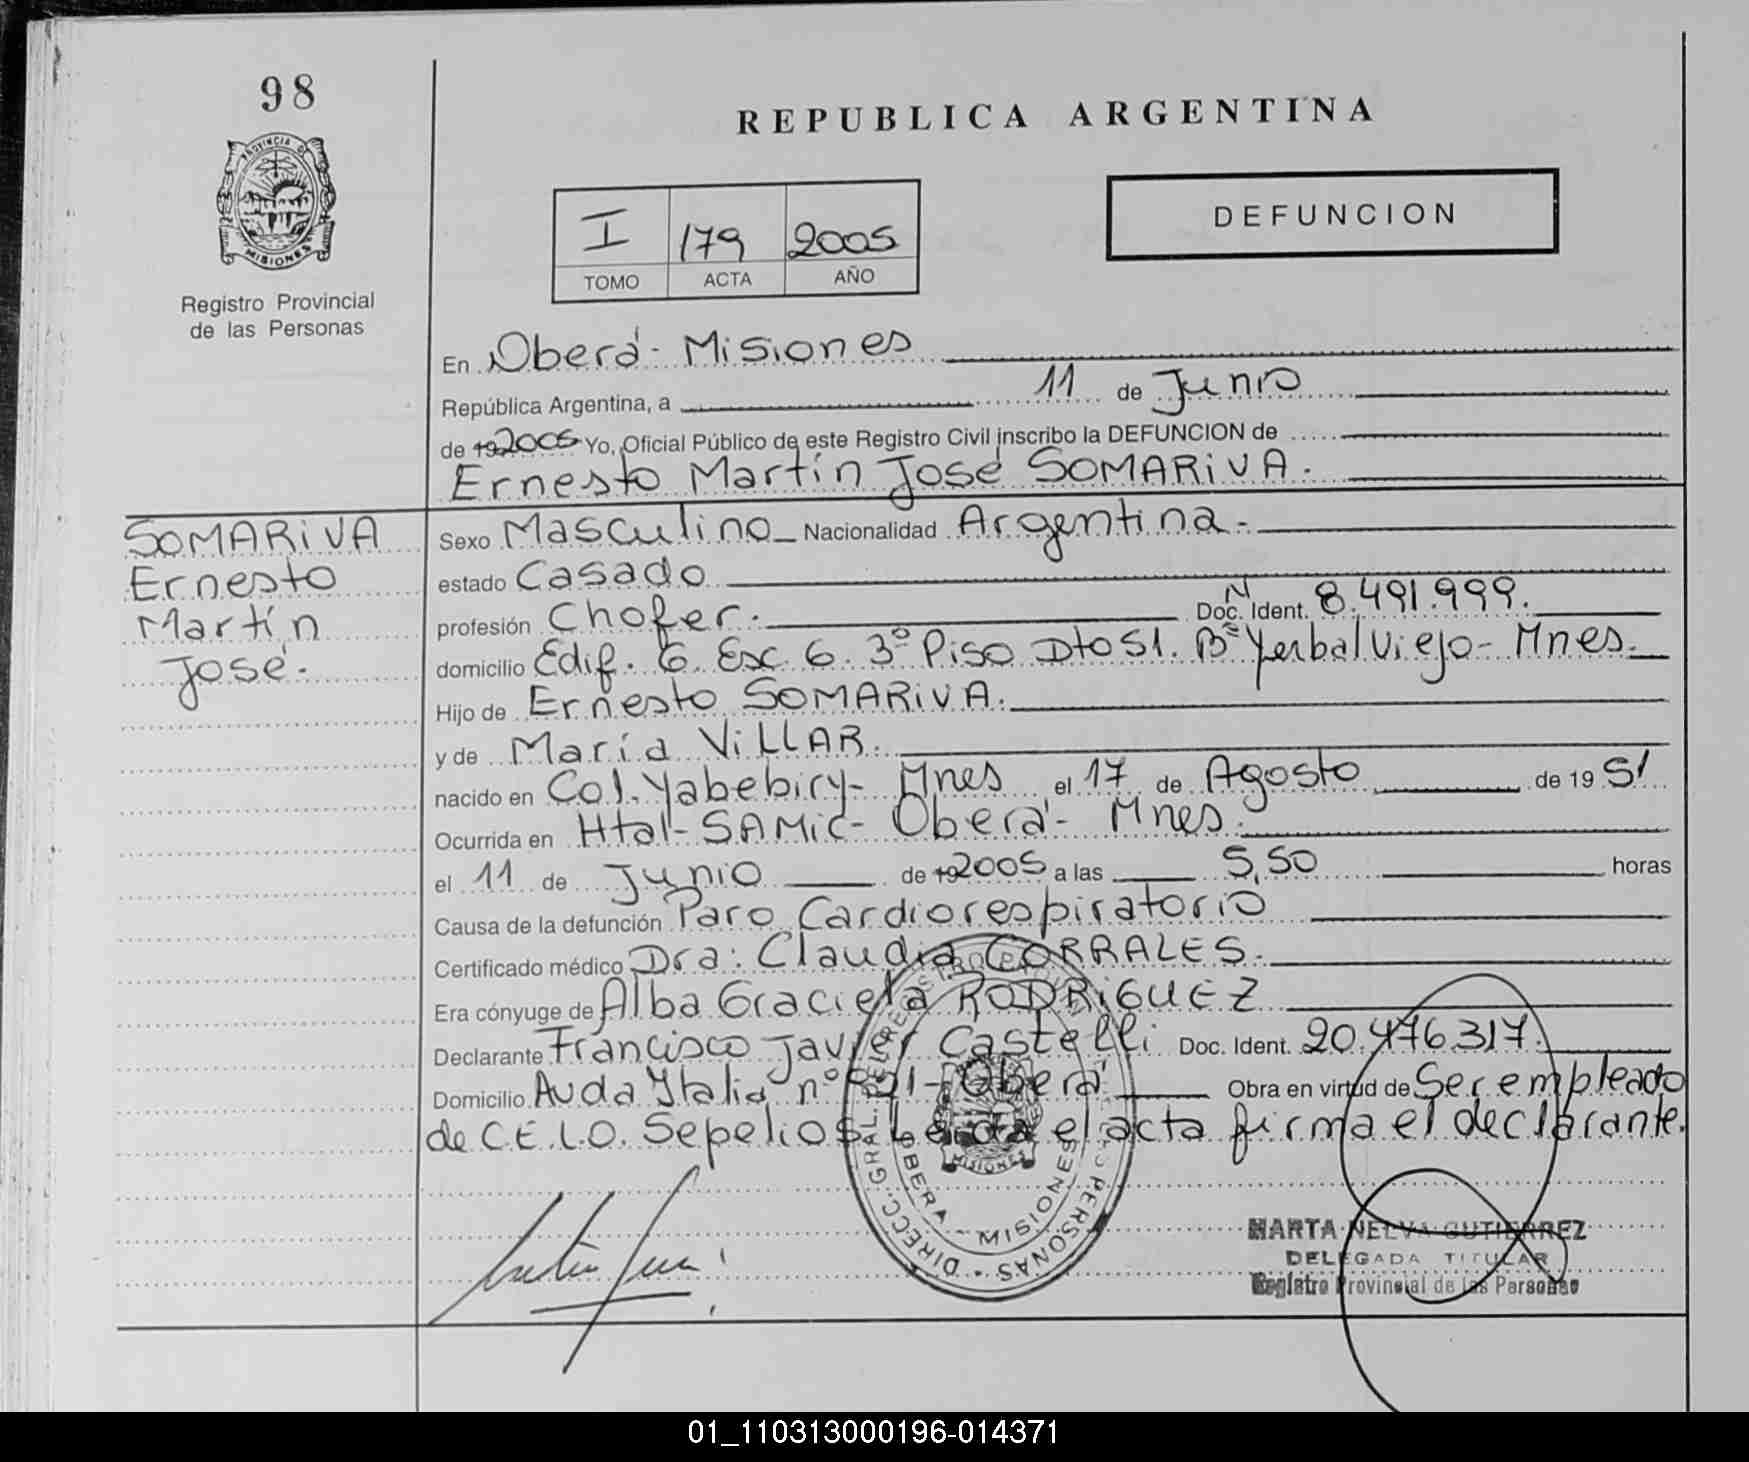 98
PROVINCIA DE
MISIONES
Registro Provincial
de las Personas
REPUBLICA ARGENTINA
I 179 2005
TOMO ACTA AÑO
DEFUNCION
En Oberá - Misiones
República Argentina, a 11 de Junio
de 19 2005 Yo, Oficial Público de este Registro Civil inscribo la DEFUNCION de
Ernesto Martín José SOMARIVA.
SOMARIVA
Ernesto
Martín
José.
Sexo Masculino Nacionalidad Argentina.
estado Casado
profesión Chofer. Doc. Ident. N 8.491.999.
domicilio Edif. 6 Esc. 6. 3º Piso Dto 51. Bº Yerbal Viejo - Mnes.
Hijo de Ernesto SOMARIVA.
y de María VILLAR.
nacido en Col. Yabebiry - Mnes el 17 de Agosto de 19 51
Ocurrida en Htal - SAMIC - Oberá - Mnes.
el 11 de Junio de 19 2005 a las 5,50 horas
Causa de la defunción Paro Cardiorespiratorio
Certificado médico Dra: Claudia CORRALES.
Era cónyuge de Alba Graciela RODRIGUEZ
Declarante Francisco Javier Castelli Doc. Ident. 20.476.317.
Domicilio Avda Italia nº Oberá Obra en virtud de Ser empleado
de C.E.L.O. Sepelios Leída el acta firma el declarante.
DIRECC. GRAL. DEL REGISTRO PERSONAS
OBERA - MISIONES
MISIONES
MARTA NELVA GUTIERREZ
DELEGADA TITULAR
Registro Provincial de las Personas
01_110313000196-014371